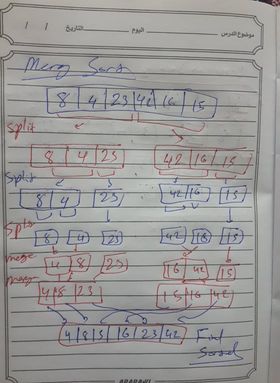 موضوع الدرس اليوم التاريخ / /
Merg Sort
8 4 23 42 16 15
split
8 4 23 42 16 15
split
8 4 23 42 16 15
split
8 4 23 42 16 15
merge
4 8 23 16 42 15
merge
4 8 23 15 16 42
4 8 15 16 23 42 Final
Sorted